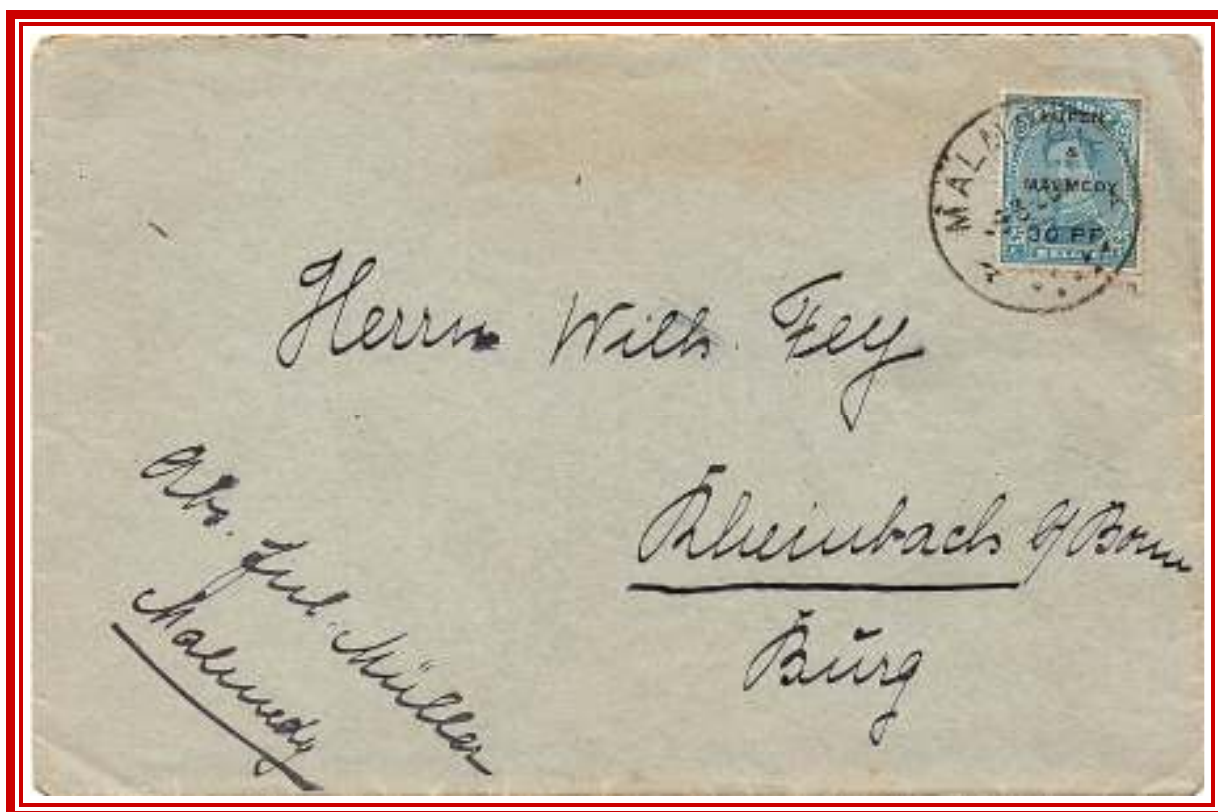 EUPEN
&
MALMEDY
30 PF
Herrn Wilh. Fey
Rheinbach b/Bonn
Burg
Abs. Jul. Müller
Malmedy